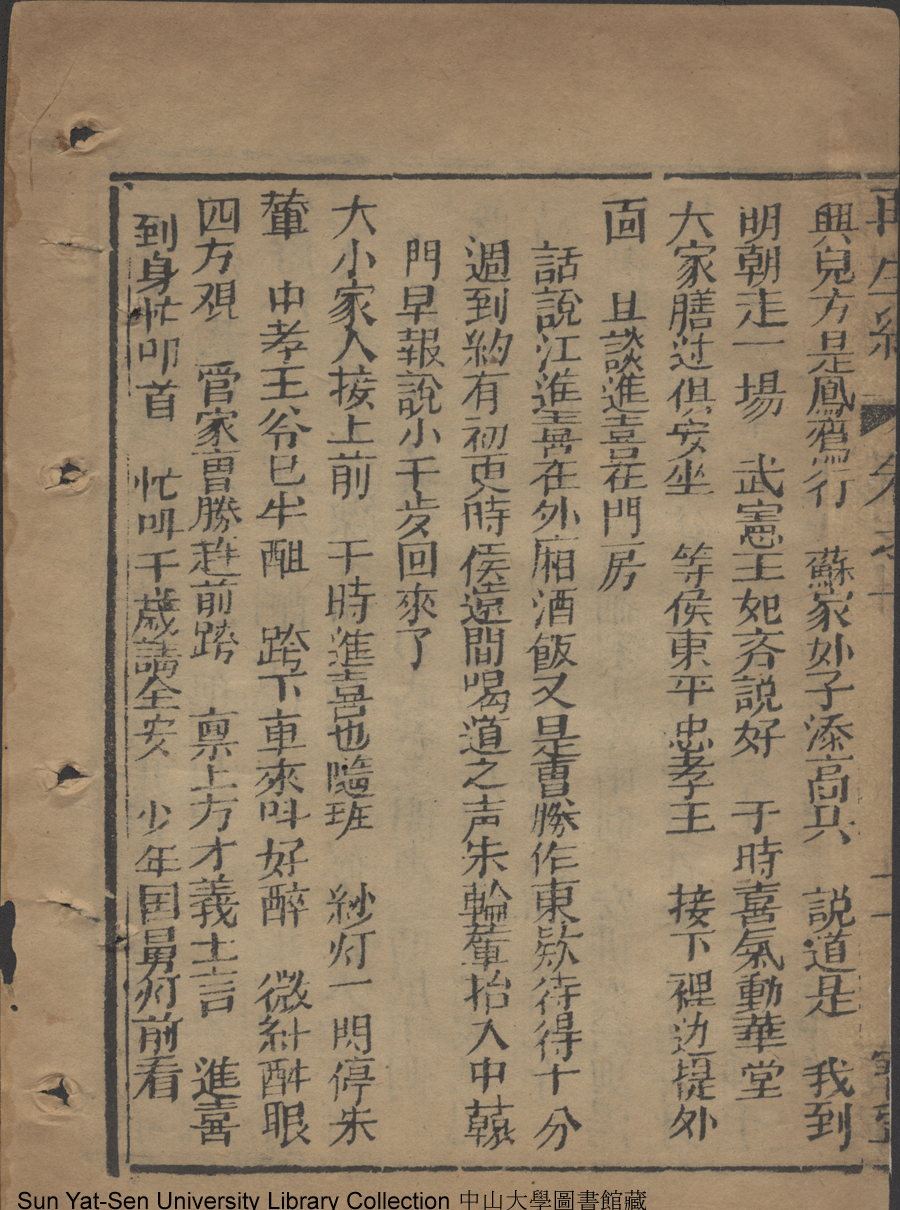 再生緣 卷之十
興兒方是鳳鸞行 蘇家妙子添高兴 説道是 我到
明朝走一場 武憲王妃斉説好 于時喜氣動華堂
大家膳过俱安坐 等侯東平忠孝王 接下裡边提外
面 且談進喜在門房
話説江進喜在外廂酒飯又是曹勝作東欵待得十分
週到約有初更時侯遠間喝道之声朱輪輦抬入中轅
門早報説小千岁回來了
大小家人接上前 于時進喜也隨班 紗灯一閃停朱
輦 中孝王爷已半酣 跨下車來叫好醉 微糾酣眼
四方覌 管家曹勝赶前跨 禀上方才義士言 進喜
到身忙叩首 忙叫千歲請全安 少年国舅灯前看
Sun Yat-Sen University Library Collection 中山大學圖書館藏